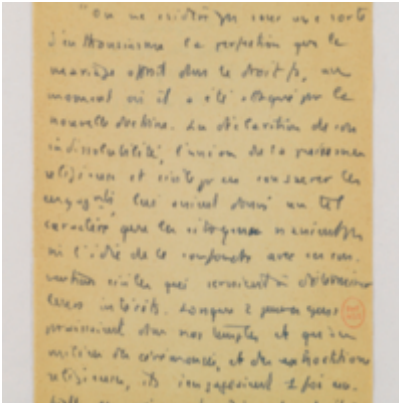 "On ne considère pas sans une sorte
d'enthousiasme la perfection que le
mariage offrit dans le droit fs, au
moment où il a été attaqué par la
nouvelle doctrine. La déclaration de son
indissolubilité, l'union de la puissance
religieuse et civile pour consacrer les
engagts lui avient donné un tel
caractère que les citoyens n'avient
ni l'idée de le confondre avec les con-
ventions civiles qui servaient à déterminer
leurs intérêts. Lorsque 2 personnes
paraissaient dans nos temples et qu'au
milieu de cérémonies, et des exhortations
religieuses, ils s'engageaient